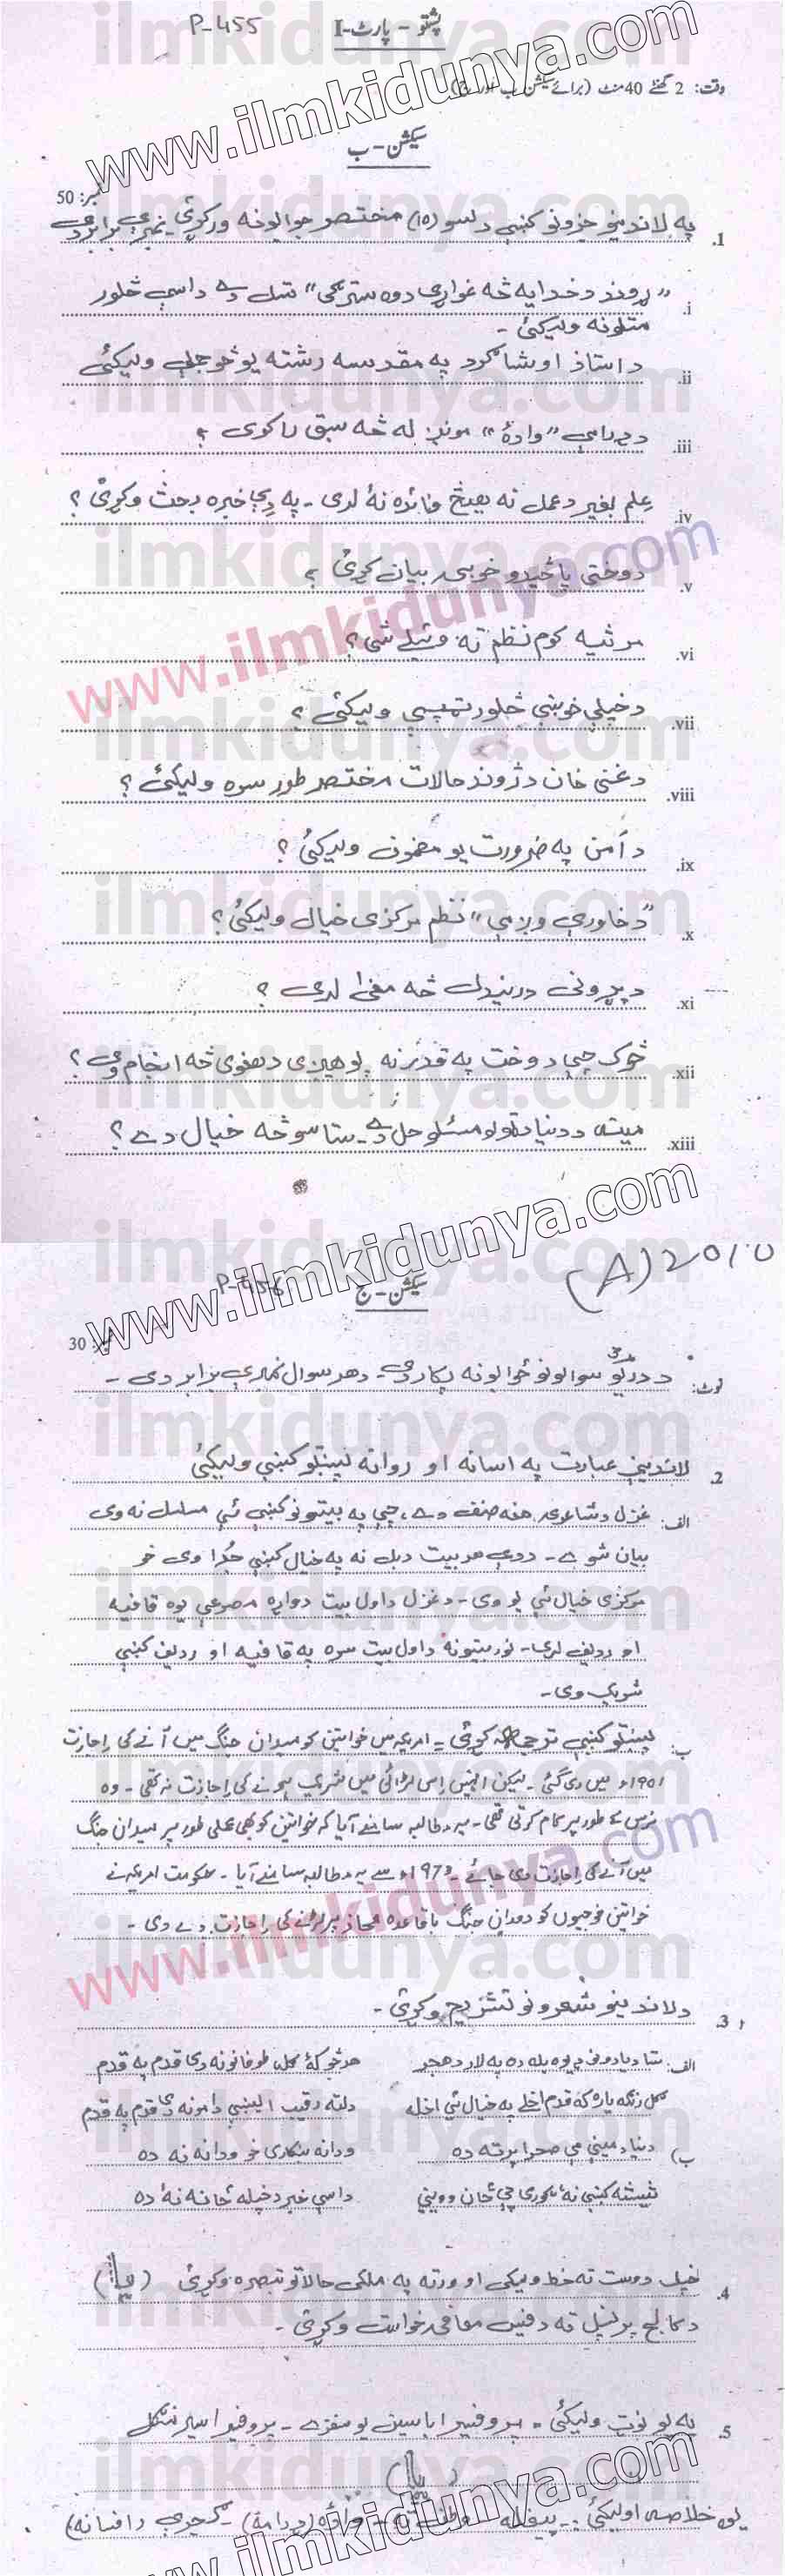 P-455
پشتو - پارٹ-I
وقت: 2 گھنٹے 40 منٹ (برائے سیکشن ب اور ج)
سیکشن - ب
نمبر: 50
1. په لاندينو جزونو کښې د لسو (۱۵) مختصر جوابونه ورکړئ نمبرې برابر دي
i. "ړوند د خدايه څه غواړي دوه سترګې" متل دے داسې څلور
متلونه وليکئ -
ii. د استاذ او شاګرد په مقدسه رشته يو څو جملې وليکئ
iii. د ډرامې "وادۀ" مونږ له څه سبق راکوي ؟
iv. علم بغير د عمل نه هيڅ فائده نۀ لري - په دې خبره بحث وکړئ ؟
v. د وختي پاڅيدو خوبۍ بيان کړئ ؟
vi. مرثيه کوم نظم ته وئيلے شي ؟
vii. د خپلې خوښې څلور ټپې وليکئ ؟
viii. د غني خان د ژوند حالات مختصر طور سره وليکئ ؟
ix. د امن په ضرورت يو مضمون وليکئ ؟
x. "د خاورې وږمې" نظم مرکزي خيال وليکئ ؟
xi. د پړونی درنيدل څه معنٰی لري ؟
xii. څوک چې د وخت په قدر نه پوهيږي د هغوي څه انجام وي ؟
xiii. مينه د دنيا د ټولو مسئلو حل دے - ستاسو څه خيال دے ؟
(A) 2010
P-456
سیکشن - ج
نمبر: 30
نوٹ: د دريو سوالونو ځوابونه پکار دي - د هر سوال نمبرې برابر دي -
2. لاندينې عبارت په اسانه او روانه پښتو کښې وليکئ
الف: غزل د شاعرۍ هغه صنف دے، چې په بيتونو کښې ئې مسلسل نه وي
بيان شوے - د دې هر بيت د بل نه په خيال کښې جدا وي خو
مرکزي خيال ئې يو وي - د غزل د اول بيت دواړه مصرعې يوه قافيه
او رديف لري - نور بيتونه د اول بيت سره په قافيه او رديف کښې
شريک وي -
ب: پښتو کښې ترجمه کړئ - امریکہ میں خواتین کو میدان جنگ میں آنے کی اجازت
۱۹۵۱ء میں دی گئی - لیکن انہیں اس لڑائی میں شریک ہونے کی اجازت نہ تھی - وہ
نرس کے طور پر کام کرتی تھی - یہ مطالبہ سامنے آیا کہ خواتین کو بھی عملی طور پر میدان جنگ
میں آنے کی اجازت دی جائے - 1973ء سے یہ مطالبہ سامنے آیا - حکومت امریکہ نے
خواتین فوجیوں کو دوران جنگ باقاعدہ محاذ پر لڑنے کی اجازت دے دی -
3. د لاندينو شعرونو تشريح وکړئ -
الف: ستا د يادونو ډيوه بله ده په لار د هجر هر څو که ګل طوفانونه دي قدم په قدم
ګل رنګه ياره که قدم اخلے په خيال ئې اخله دلته رقيب ايښې دامونه دي قدم په قدم
ب) دنيا د مينې مې صحرا پرته ده ودانه ښکاري خو ودانه نه ده
شيشه کښې نۀ ګوري چې ځان وويني داسې خبر د خپله ځانه نۀ ده
4. خپل دوست ته خط وليکئ او ورته په ملکي حالاتو تبصره وکړئ (يا)
د کالج پرنسپل ته د فيس معافي درخواست وکړئ -
5. په يو نوټ وليکئ - پروفيسر اباسين يوسفزے - پروفيسر اسير منګل
(يا)
يوه خلاصه اوليکئ - پيغله - وطن ته - وادۀ (ډرامه) - ګجرې (افسانه)